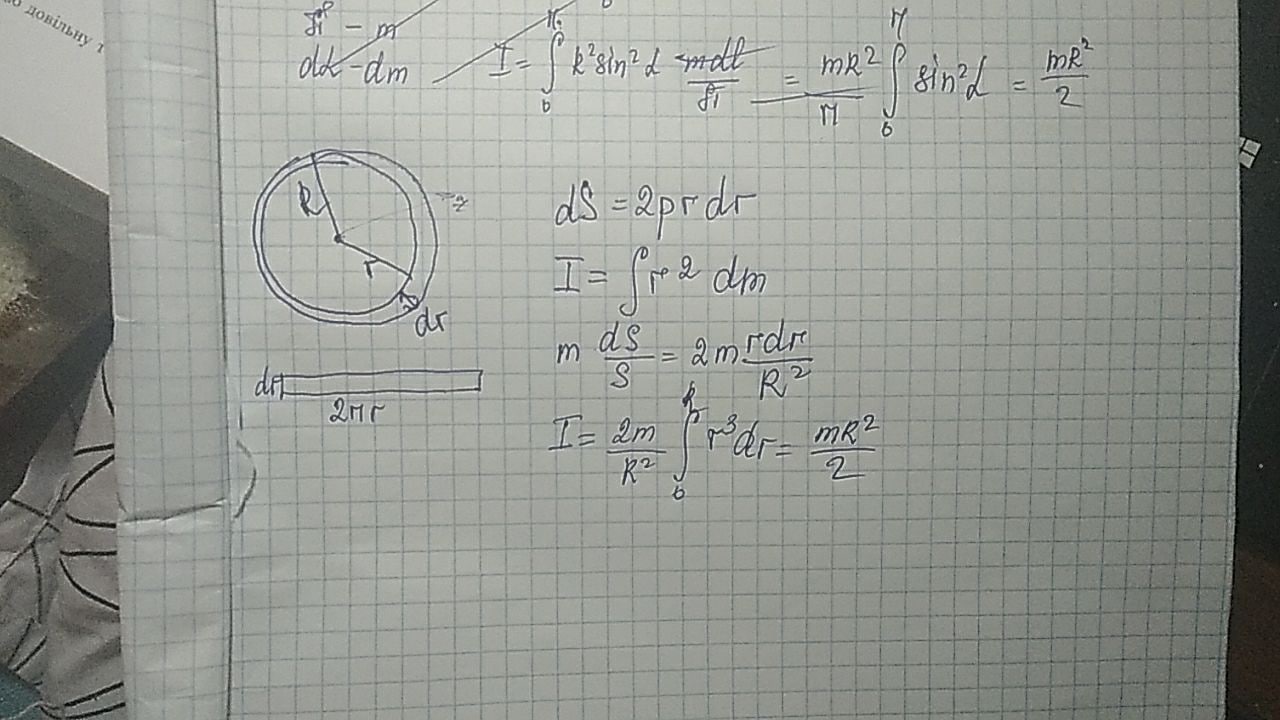 довільну т
π − m
dα − dm
I = ∫₀^π R² sin² α mdα/π = mR²/π ∫₀^π sin² α = mR²/2
R
r
dr
dS = 2prdr
I = ∫ r² dm
m dS/S = 2m rdr/R²
dr
2πr
I = 2m/R² ∫₀^R r³dr = mR²/2